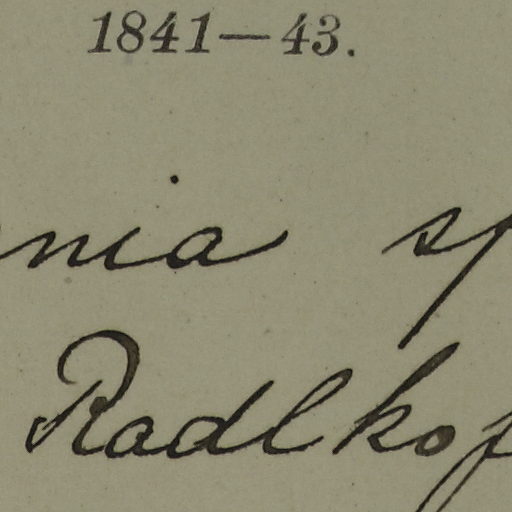 1841—43.
nia sp
Radlkof